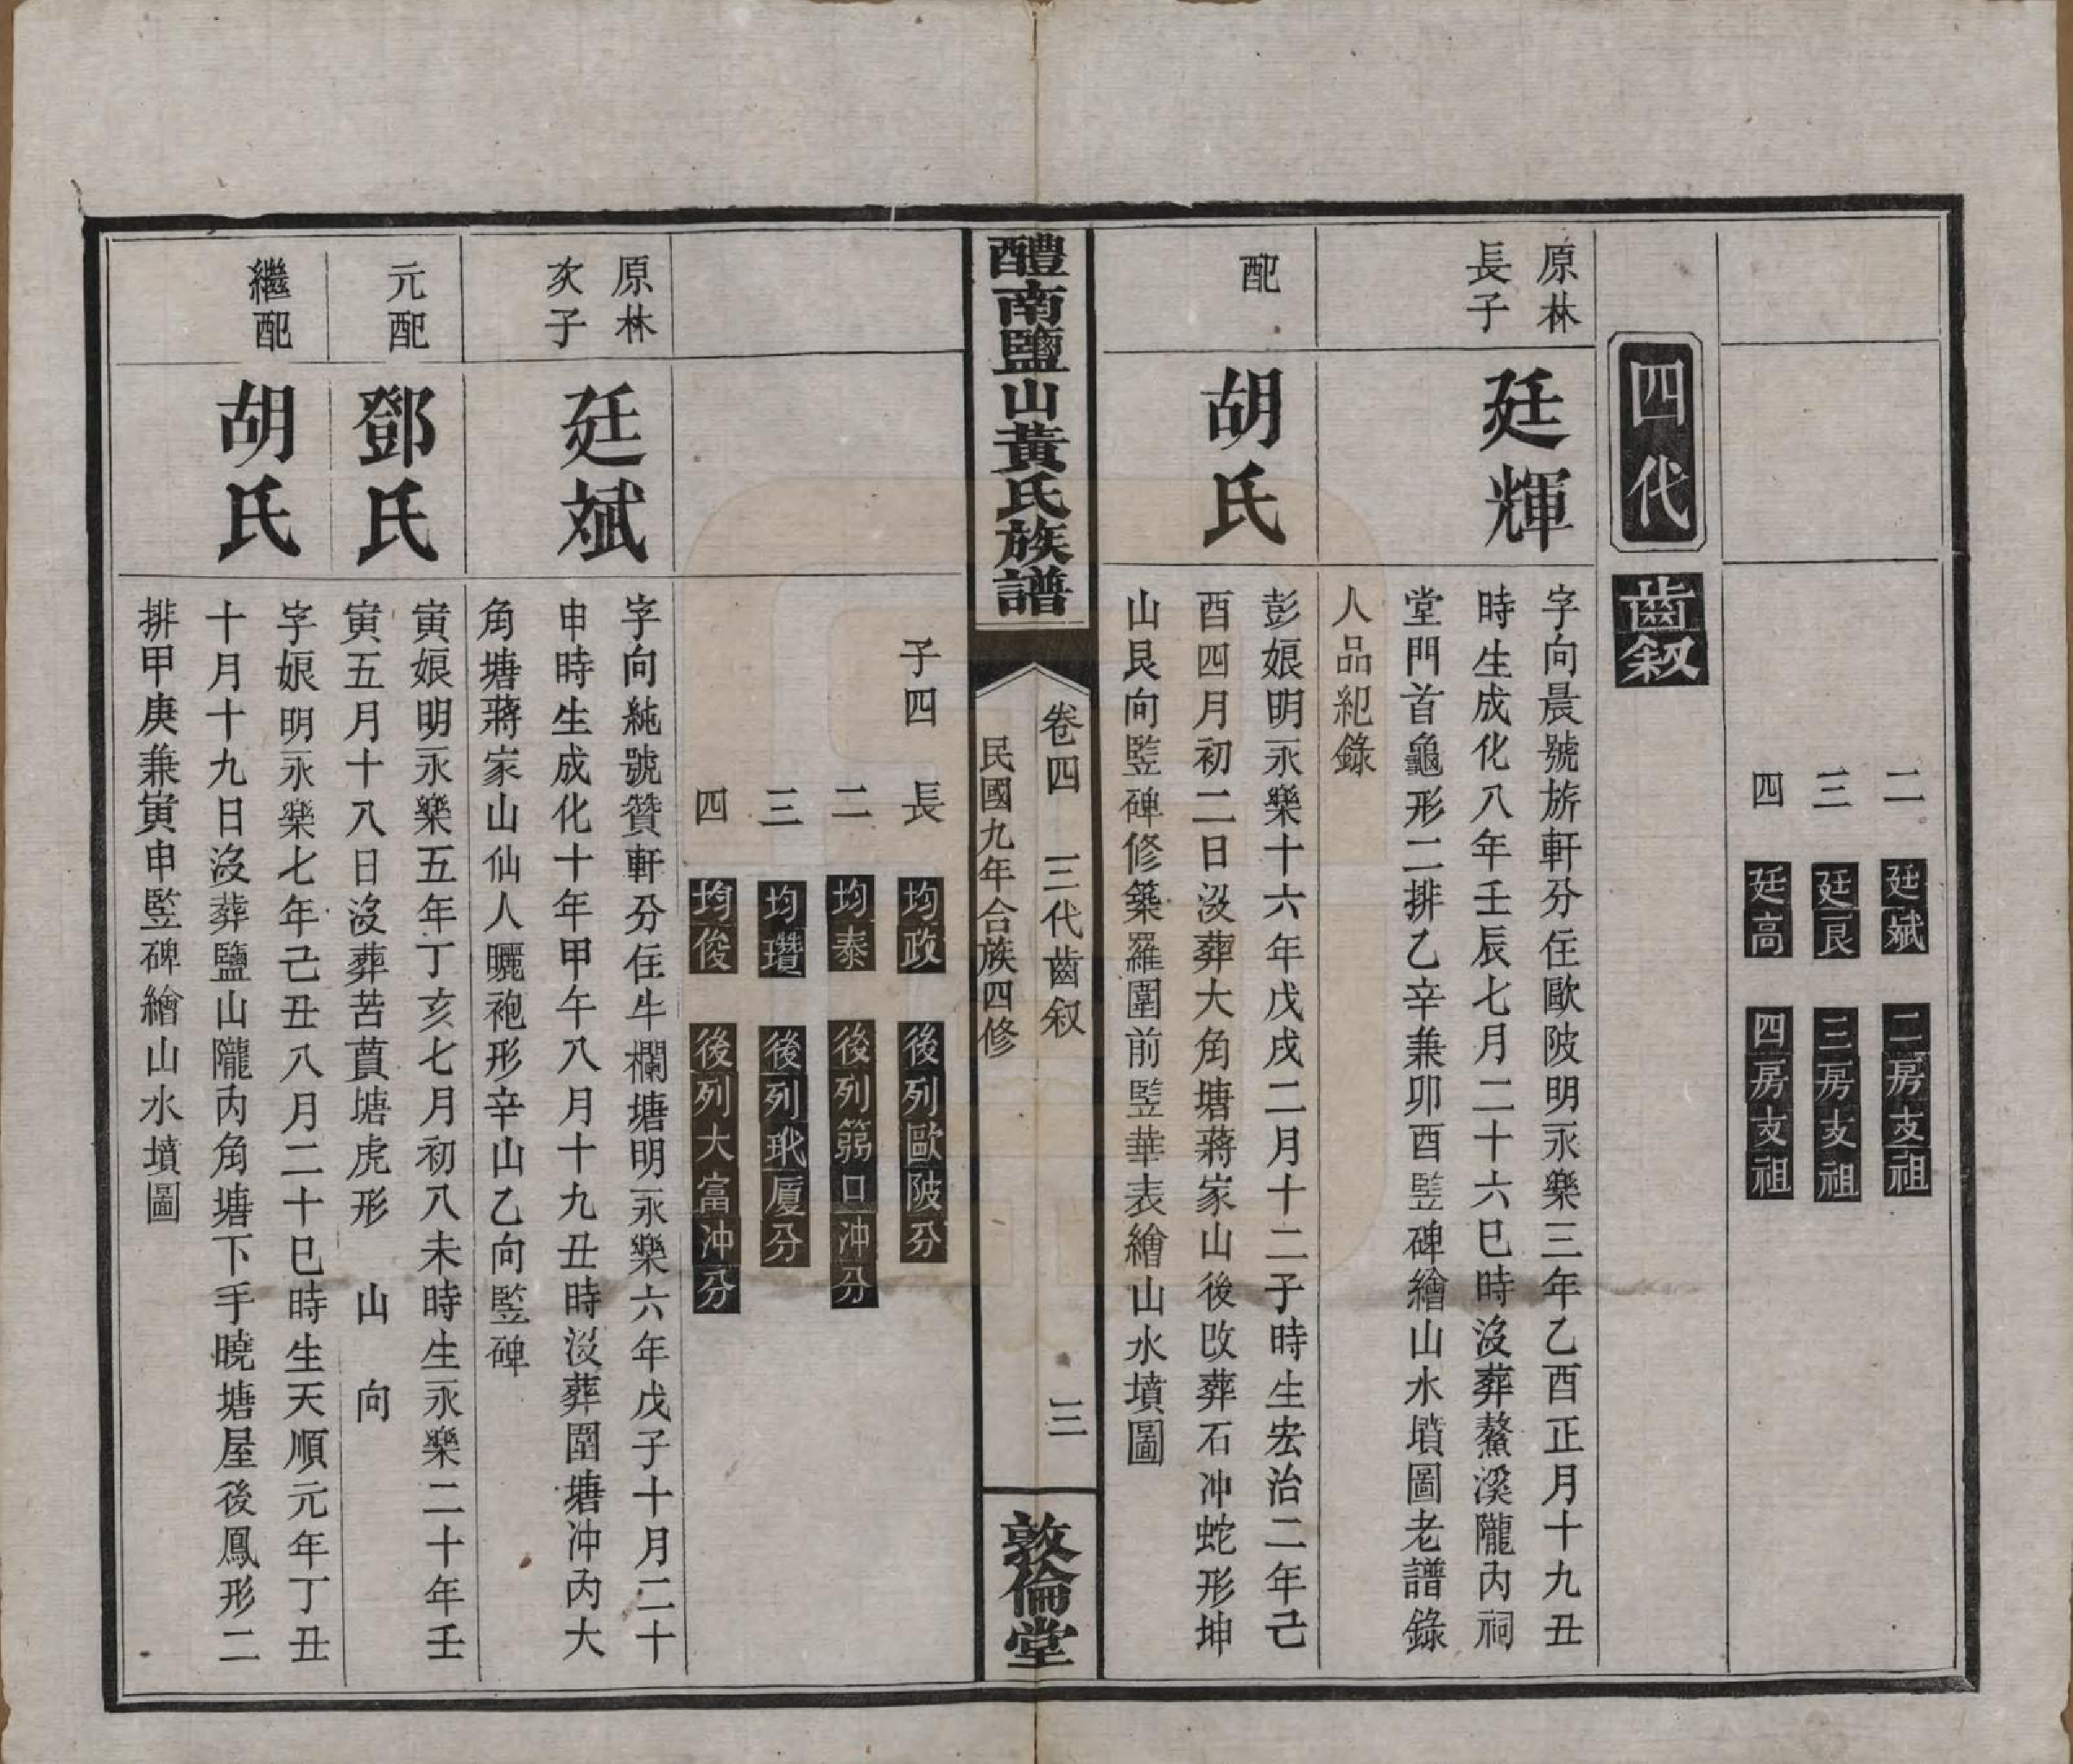 二　廷斌　二房支祖
三　廷艮　三房支祖
四　廷高　四房支祖
四代　齒叙
原林
長子
廷輝
字向晨號旂軒分住歐陂明永樂三年乙酉正月十九丑
時生成化八年壬辰七月二十六巳時沒葬鰲溪隴內祠
堂門首龜形二排乙辛兼卯酉竪碑繪山水墳圖老譜錄
人品紀錄
配
胡氏
彭娘明永樂十六年戊戌二月十二子時生宏治二年己
酉四月初二日沒葬大角塘蔣家山後改葬石冲蛇形坤
山艮向竪碑修築羅圍前竪華表繪山水墳圖
醴南鹽山黃氏族譜
卷四　三代齒叙　三
民國九年合族四修
敦倫堂
子四　長　均政　後列歐陂分
二　均泰　後列箬口冲分
三　均瓚　後列玳厦分
四　均俊　後列大富冲分
原林
次子
廷斌
字向純號贊軒分住牛欄塘明永樂六年戊子十月二十
申時生成化十年甲午八月十九丑時沒葬圍塘冲內大
角塘蔣家山仙人曬袍形辛山乙向竪碑
元配
鄧氏
寅娘明永樂五年丁亥七月初八未時生永樂二十年壬
寅五月十八日沒葬苦蕒塘虎形　山　向
繼配
胡氏
字娘明永樂七年己丑八月二十巳時生天順元年丁丑
十月十九日沒葬鹽山隴內角塘下手曉塘屋後鳳形二
排甲庚兼寅申竪碑繪山水墳圖